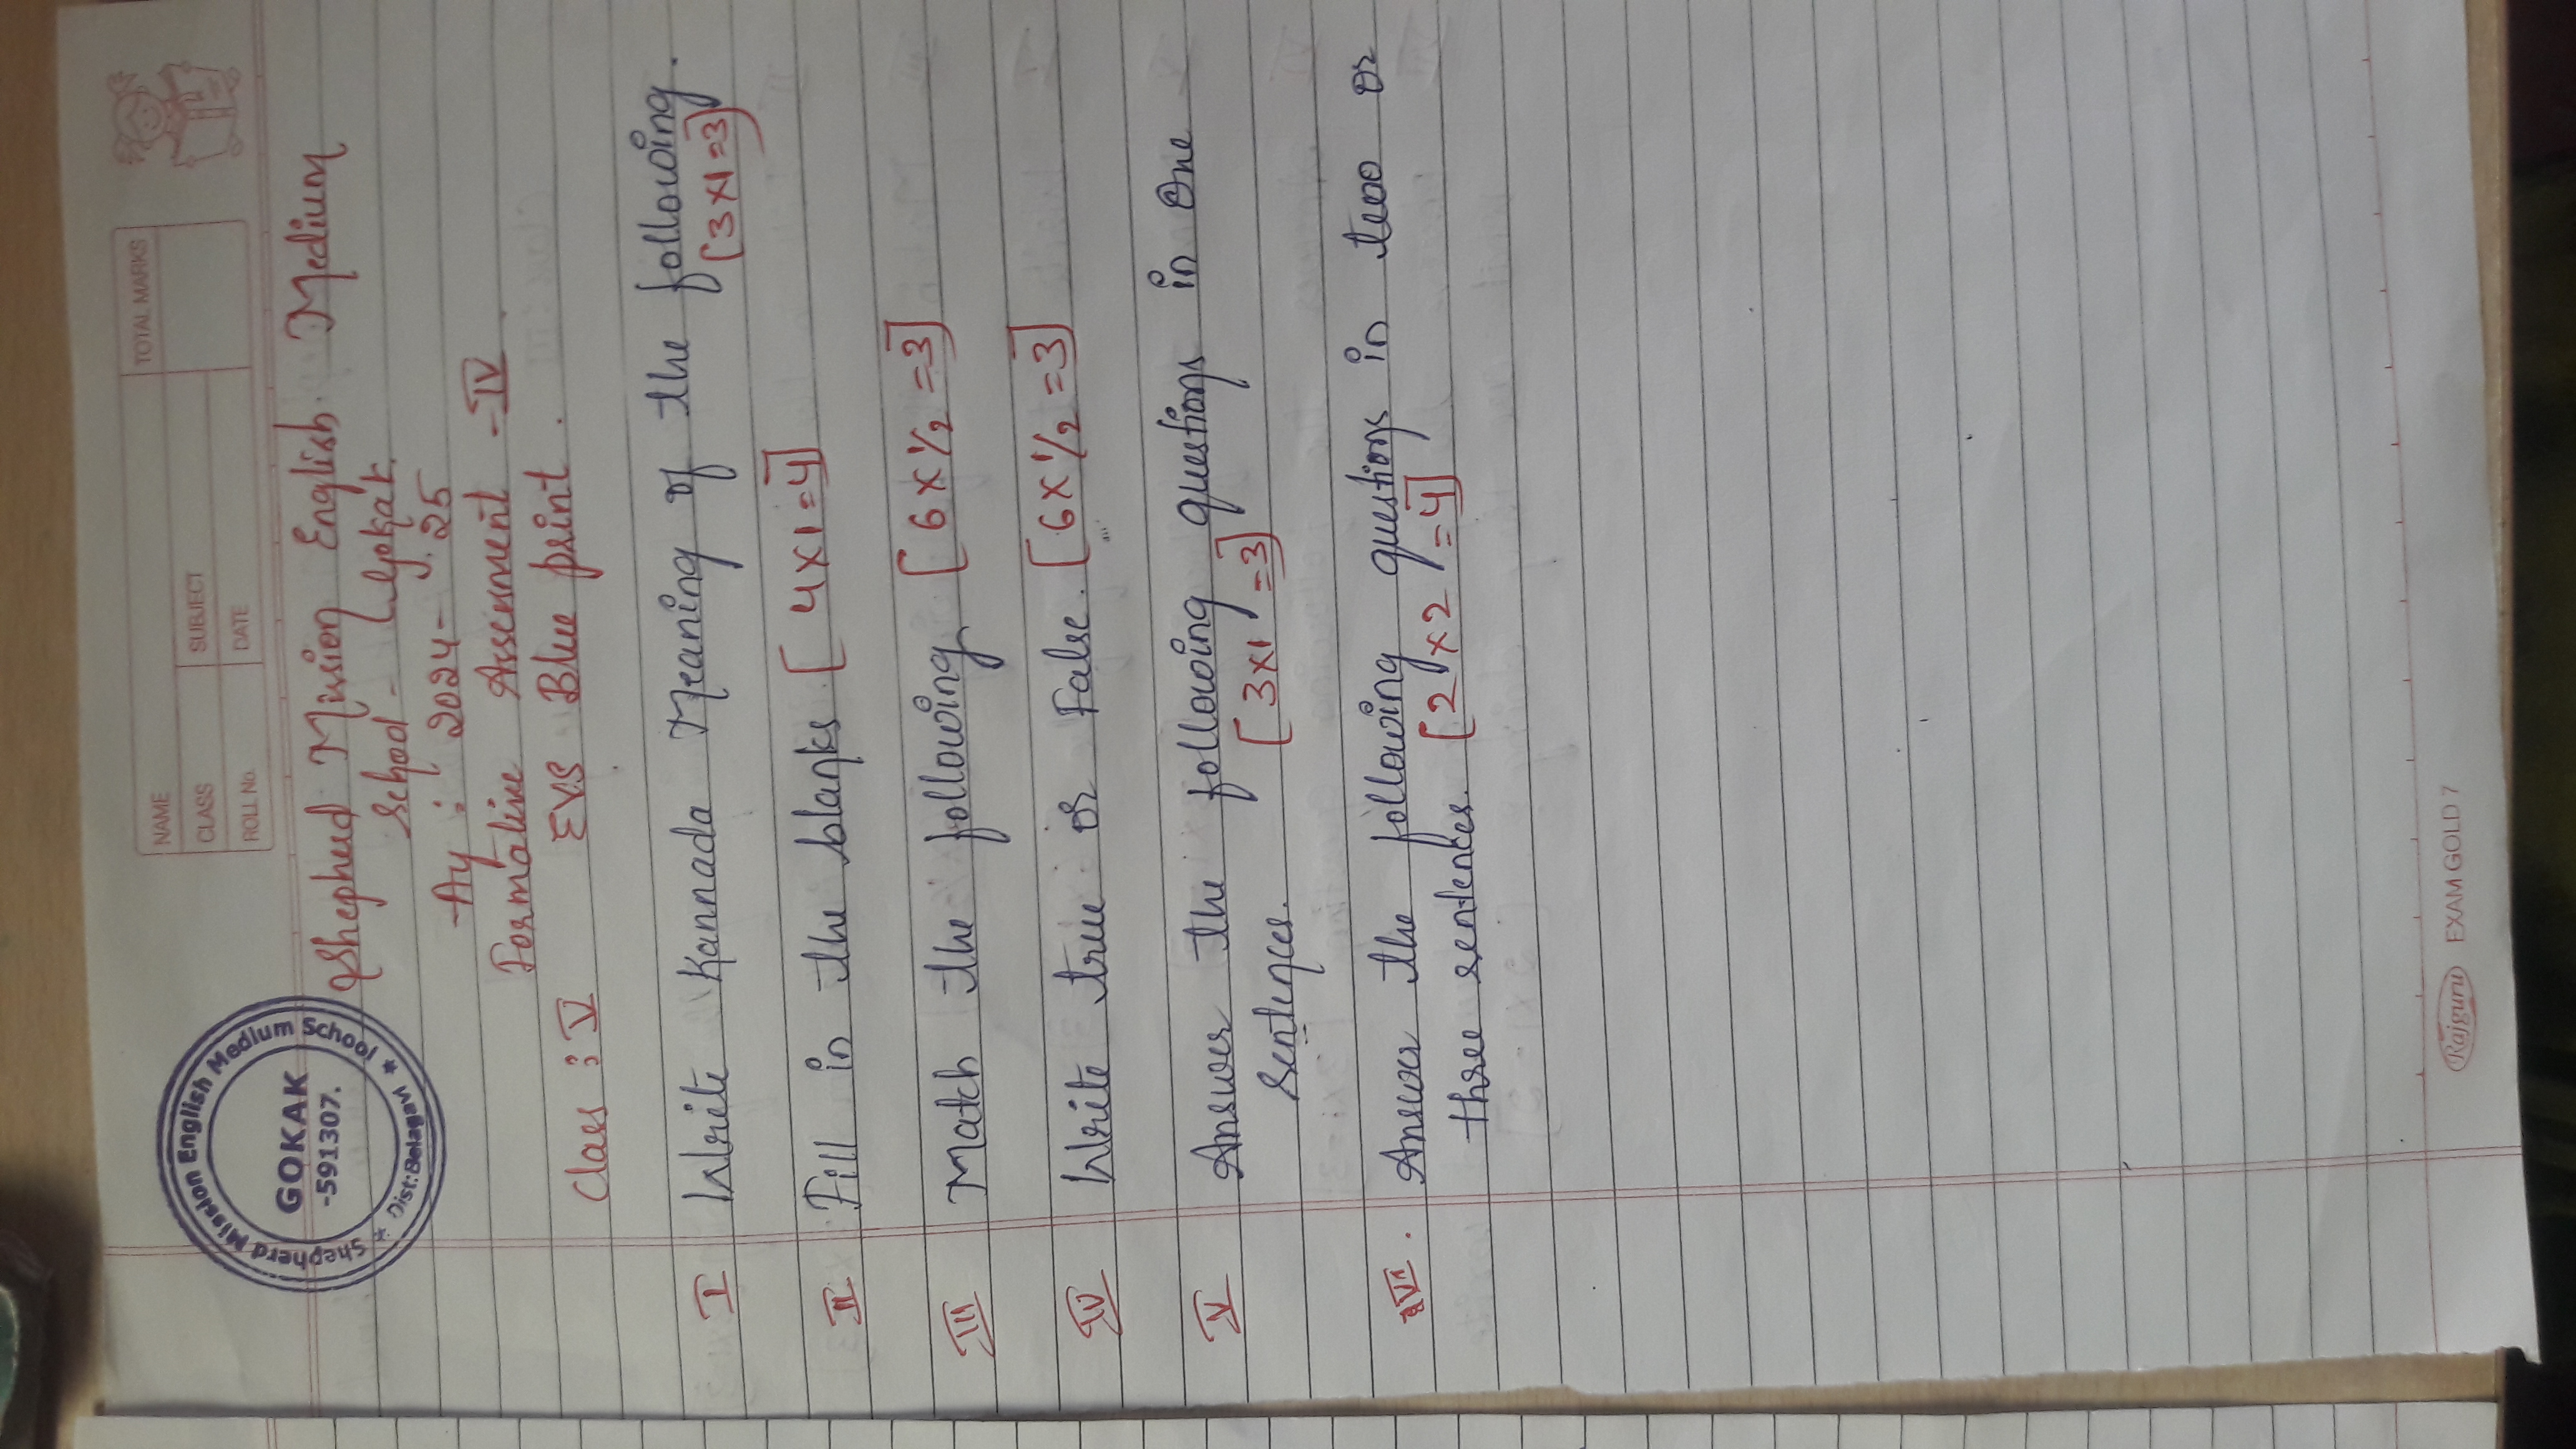 NAME
CLASS
SUBJECT
TOTAL MARKS
ROLL No.
DATE
Shepherd Mission English Medium School
GOKAK
-591307.
Dist:Belagavi
Shepherd Mission English Medium
School - Gokak.
Ay : 2024-25
Formative Assessment -IV
Class : V EVS Blue print.
I Write Kannada Meaning of the following.
[3x1=3]
II Fill in the blanks. [4x1=4]
III Match the following. [6x1/2=3]
IV Write true or False. [6x1/2=3]
V Answer the following questions in One
Sentences. [3x1=3]
VI. Answer the following questions in two or
three sentences. [2x2=4]
Rajguru EXAM GOLD 7